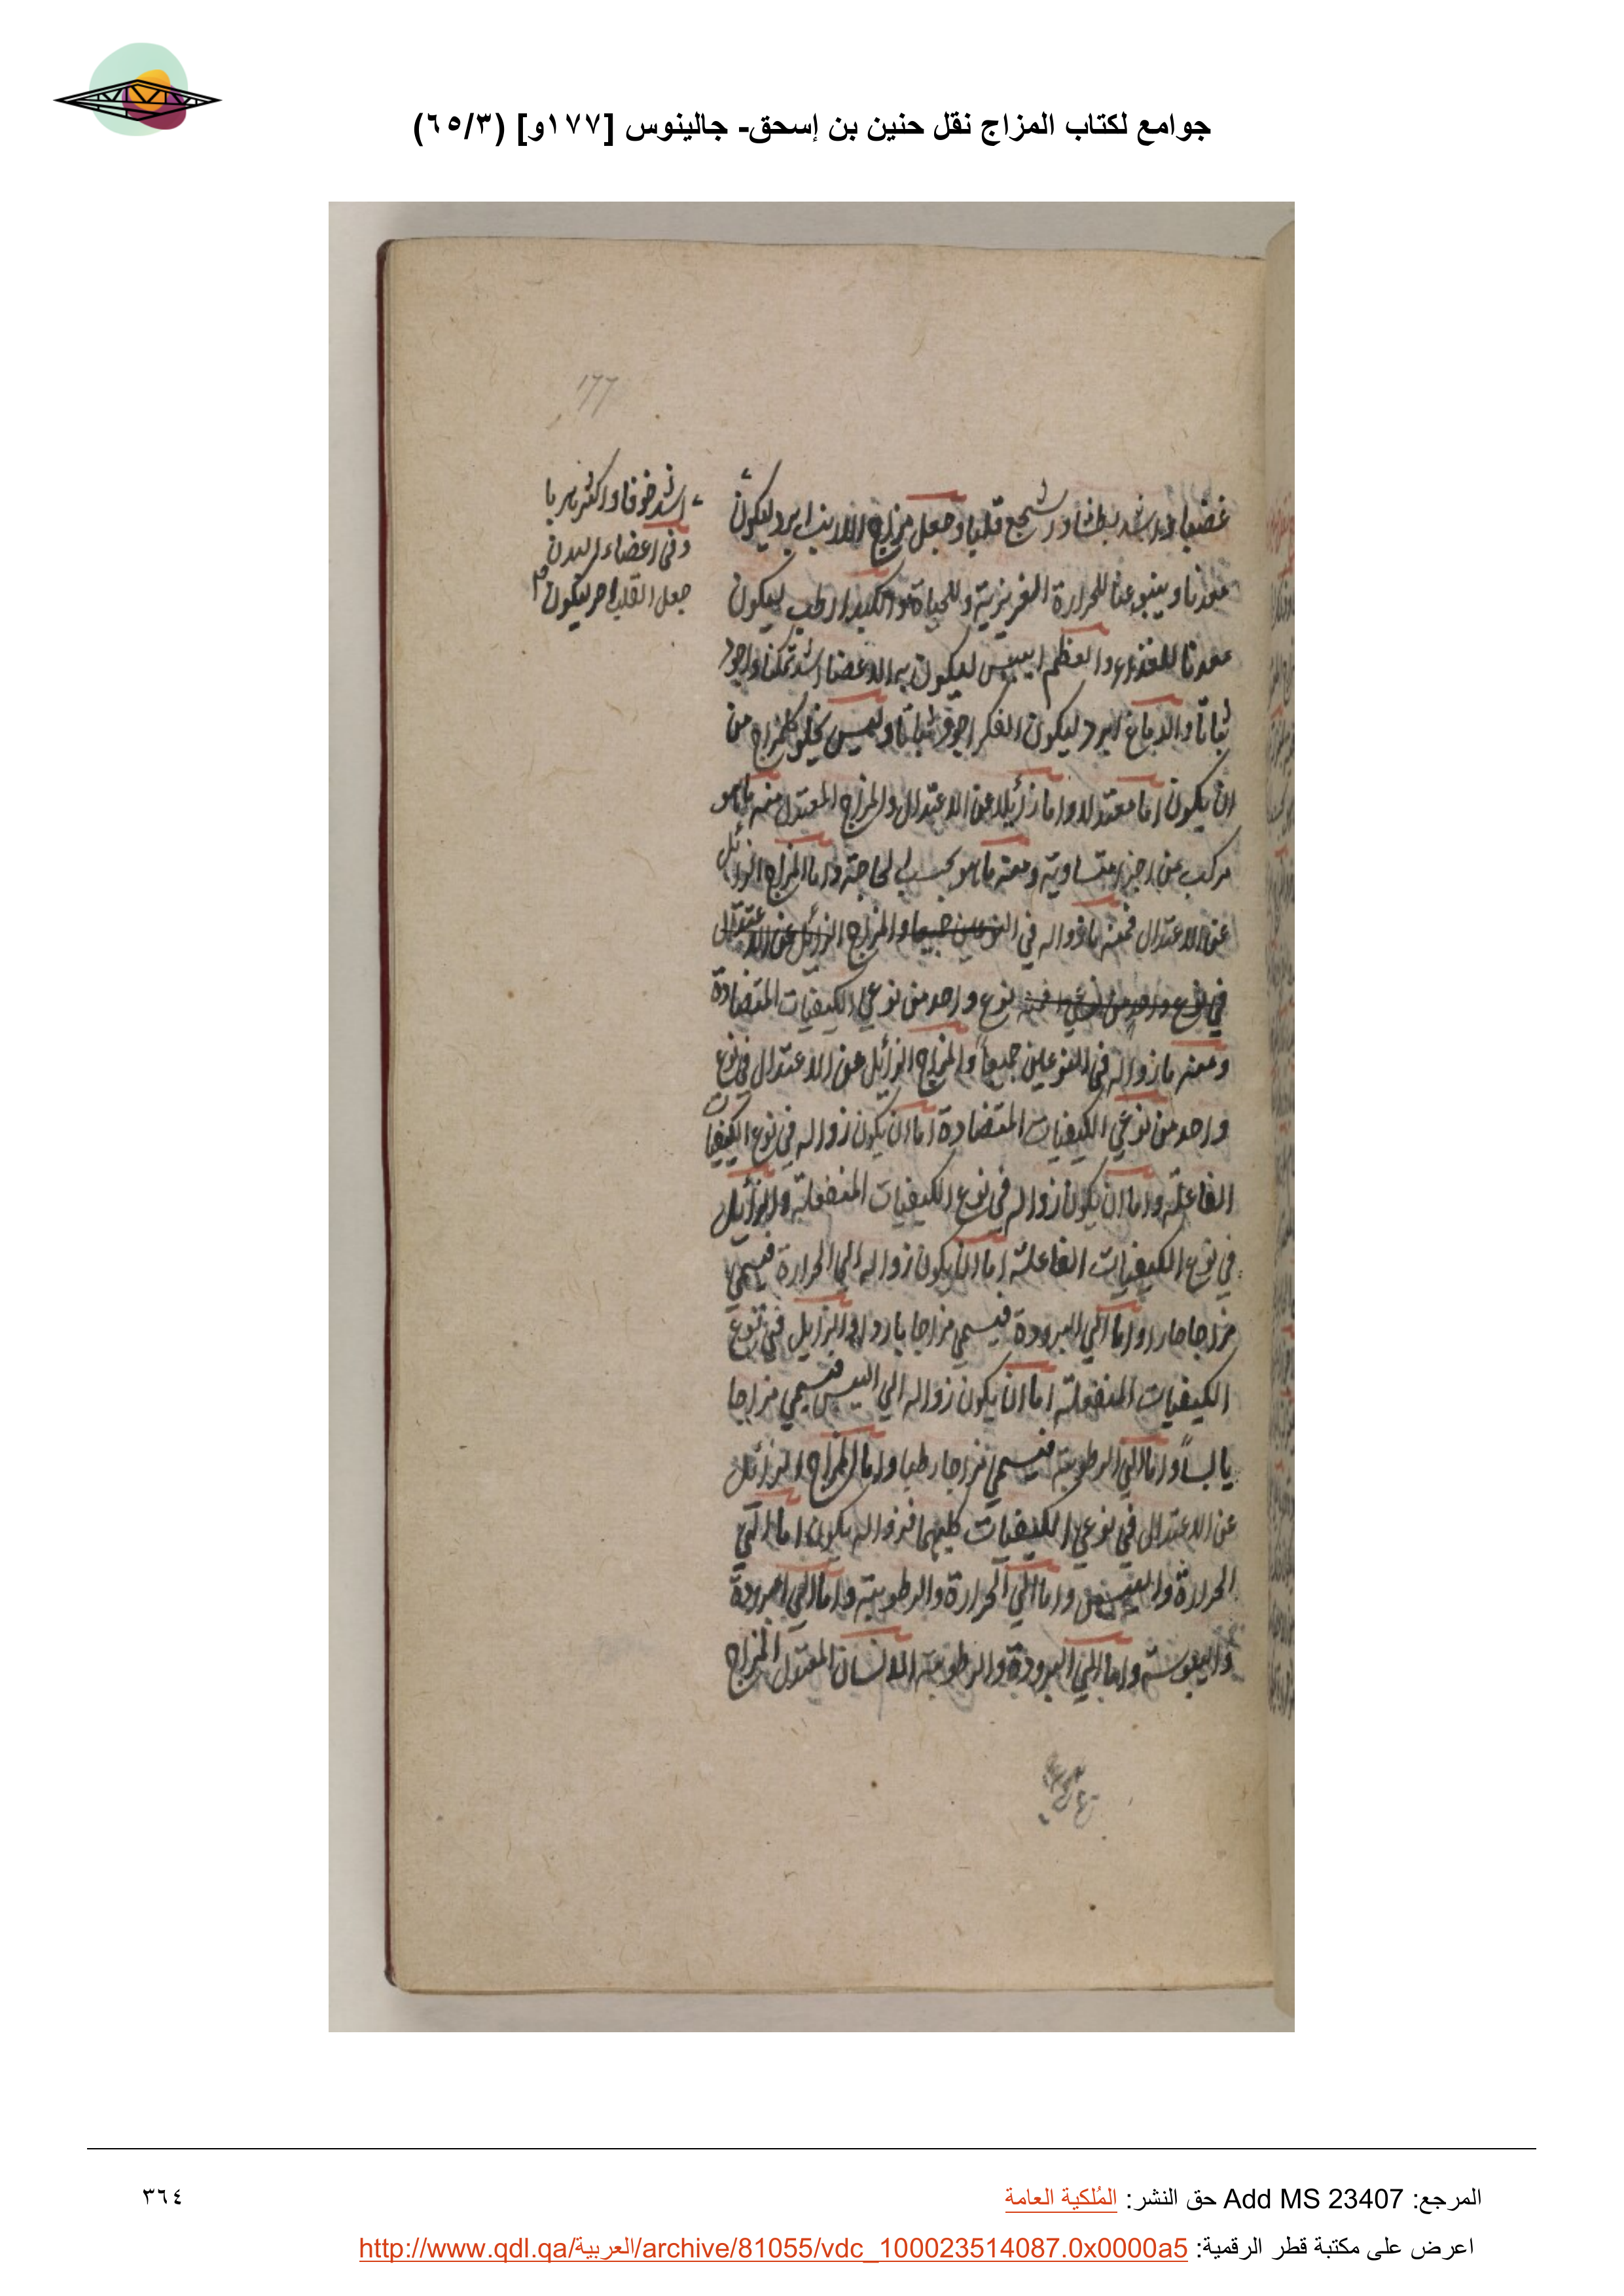 جوامع لكتاب المزاج نقل حنين بن إسحق- جالينوس [١٧٧و] (٦٥/٣)
177
غضبا واشد بطشا واشجع قلبا وجعل مزاج الارنب ابرد ليكون
اشد خوفا واكثر هربا
وفى اعضاء البدن
جعل القلب احر ليكون
معدنا وينبوعا للحرارة الغريزية وللحياة والكبد ارطب ليكون
معدنا للغذاء والعظم ايبس ليكون به الاعضا اشد تمكنا واجود
ثباتا والدماغ ابرد ليكون الفكر اجود ثباتا وليس يخلو كل مزاج من
ان يكون اما معتدلا واما زائلا عن الاعتدال والمزاج المعتدل منه ما هو
مركب من اجزا متساوية ومنه ما هو بحسب الحاجة واما المزاج الزائل
عن الاعتدال فمنه ما زواله في النوعين جميعا والمزاج الزائل عن الاعتدال
في نوع واحد من نوعي نوع واحد من نوعي الكيفيات المتضادة
ومنه ما زواله فى النوعين جميعاً والمزاج الزائل عن الاعتدال في نوع
واحد من نوعي الكيفيات المتضادة اما ان يكون زواله في نوع الكيفيات
الفاعلة واما ان يكون زواله في نوع الكيفيات المنفعلة والزائل
في نوع الكيفيات الفاعلة اما ان يكون زواله الي الحرارة فيسمي
مزاجا حارا واما الي البرودة فيسمي مزاجا باردا والزايل في نوع
الكيفيات المنفعلة اما ان يكون زواله الي اليبس فيسمي مزاجا
يابساً واما الي الرطوبة فيسمي مزاجا رطبا واما المزاج الزائل
عن الاعتدال في نوعي الكيفيات كليهما فزواله يكون اما الي
الحرارة واليبس واما الي الحرارة والرطوبة واما الي البرودة
واليبوسة واما الي البرودة والرطوبة الانسان المعتدل المزاج
المرجع: Add MS 23407 حق النشر: المُلكية العامة
٣٦٤
اعرض على مكتبة قطر الرقمية: http://www.qdl.qa/العربية/archive/81055/vdc_100023514087.0x0000a5